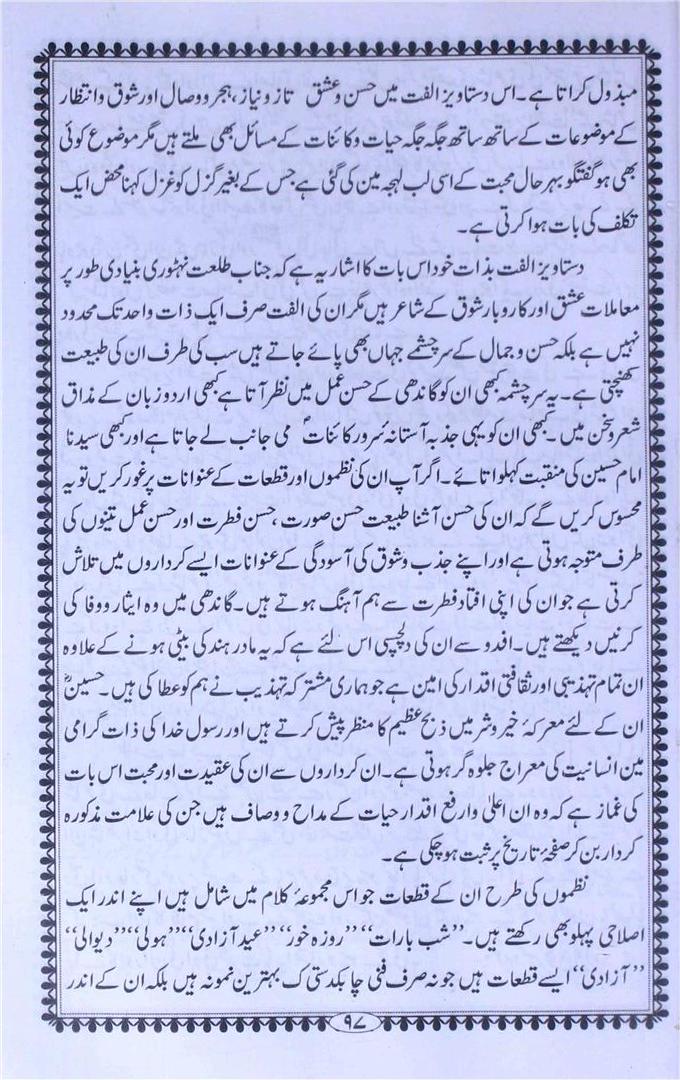 مبذول کراتا ہے۔ اس دستاویز الفت میں حسن و عشق تاز و نیاز، ہجر و وصال اور شوق و انتظار
کے موضوعات کے ساتھ ساتھ جگہ جگہ حیات و کائنات کے مسائل بھی ملتے ہیں مگر موضوع کوئی
بھی ہو گفتگو بہر حال محبت کے اسی لب لہجہ مین کی گئی ہے جس کے بغیر گزل کو غزل کہنا محض ایک
تکلف کی بات ہوا کرتی ہے۔
دستاویز الفت بذات خود اس بات کا اشاریہ ہے کہ جناب طلعت نہٹوری بنیادی طور پر
معاملات عشق اور کاروبار شوق کے شاعر ہیں مگر ان کی الفت صرف ایک ذات واحد تک محدود
نہیں ہے بلکہ حسن و جمال کے سرچشمے جہاں بھی پائے جاتے ہیں سب کی طرف ان کی طبیعت
کھنچتی ہے۔ یہ سرچشمہ کبھی ان کو گاندھی کے حسن عمل میں نظر آتا ہے کبھی اردو زبان کے مذاق
شعر و سخن میں۔ کبھی ان کو یہی جذبہ آستانہ سرور کائناتؐ می جانب لے جاتا ہے اور کبھی سیدنا
امام حسین کی منقبت کہلواتا ہے۔ اگر آپ ان کی نظموں اور قطعات کے عنوانات پر غور کریں تو یہ
محسوس کریں گے کہ ان کی حسن آشنا طبیعت حسن صورت، حسن فطرت اور حسن عمل تینوں کی
طرف متوجہ ہوتی ہے اور اپنے جذب و شوق کی آسودگی کے عنوانات ایسے کرداروں میں تلاش
کرتی ہے جو ان کی اپنی افتاد فطرت سے ہم آہنگ ہوتے ہیں۔ گاندھی میں وہ ایثار و وفا کی
کرنیں دیکھتے ہیں۔ افدو سے ان کی دلچسپی اس لئے ہے کہ یہ مادر ہند کی بیٹی ہونے کے علاوہ
ان تمام تہذیبی اور ثقافتی اقدار کی امین ہے جو ہماری مشترکہ تہذیب نے ہم کو عطا کی ہیں۔ حسینؓ
ان کے لئے معرکۂ خیر و شر میں ذبح عظیم کا منظر پیش کرتے ہیں اور رسول خدا کی ذات گرامی
مین انسانیت کی معراج جلوہ گر ہوتی ہے۔ ان کرداروں سے ان کی عقیدت اور محبت اس بات
کی غماز ہے کہ وہ ان اعلیٰ و ارفع اقدار حیات کے مداح و وصاف ہیں جن کی علامت مذکورہ
کردار بن کر صفحۂ تاریخ پر ثبت ہو چکی ہے۔
نظموں کی طرح ان کے قطعات جو اس مجموعۂ کلام میں شامل ہیں اپنے اندر ایک
اصلاحی پہلو بھی رکھتے ہیں۔ ”شب بارات“ ”روزہ خور“ ”عید آزادی“ ”ہولی“ ”دیوالی“
”آزادی“ ایسے قطعات ہیں جو نہ صرف فنی چابکدستی ک بہترین نمونہ ہیں بلکہ ان کے اندر
۹۷